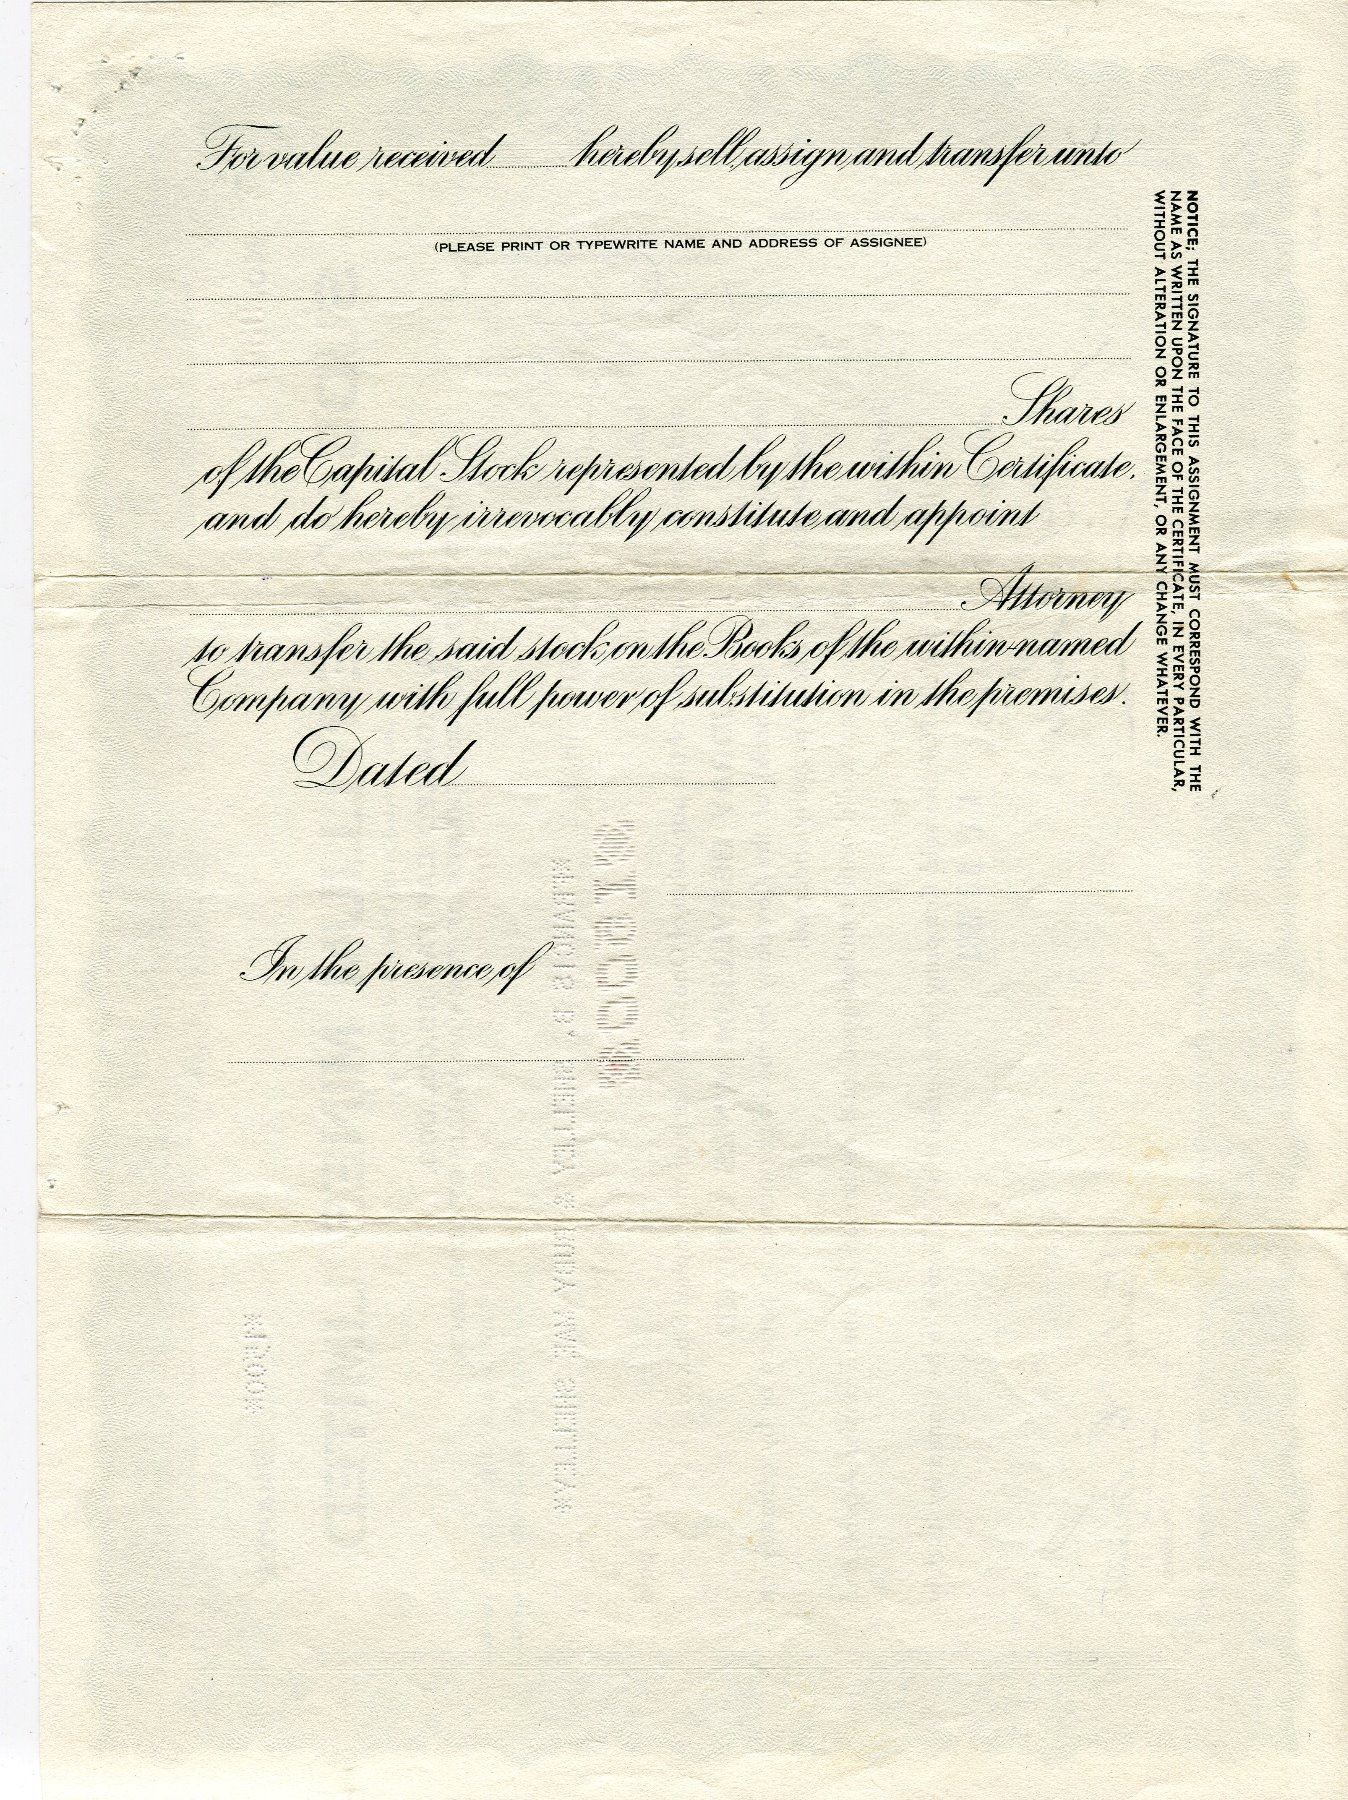 For value received hereby sell, assign and transfer unto
(PLEASE PRINT OR TYPEWRITE NAME AND ADDRESS OF ASSIGNEE)
Shares
of the Capital Stock represented by the within Certificate,
and do hereby irrevocably constitute and appoint
Attorney
to transfer the said stock on the Books of the within-named
Company with full power of substitution in the premises.
Dated
In the presence of
NOTICE: THE SIGNATURE TO THIS ASSIGNMENT MUST CORRESPOND WITH THE
NAME AS WRITTEN UPON THE FACE OF THE CERTIFICATE, IN EVERY PARTICULAR,
WITHOUT ALTERATION OR ENLARGEMENT, OR ANY CHANGE WHATEVER.